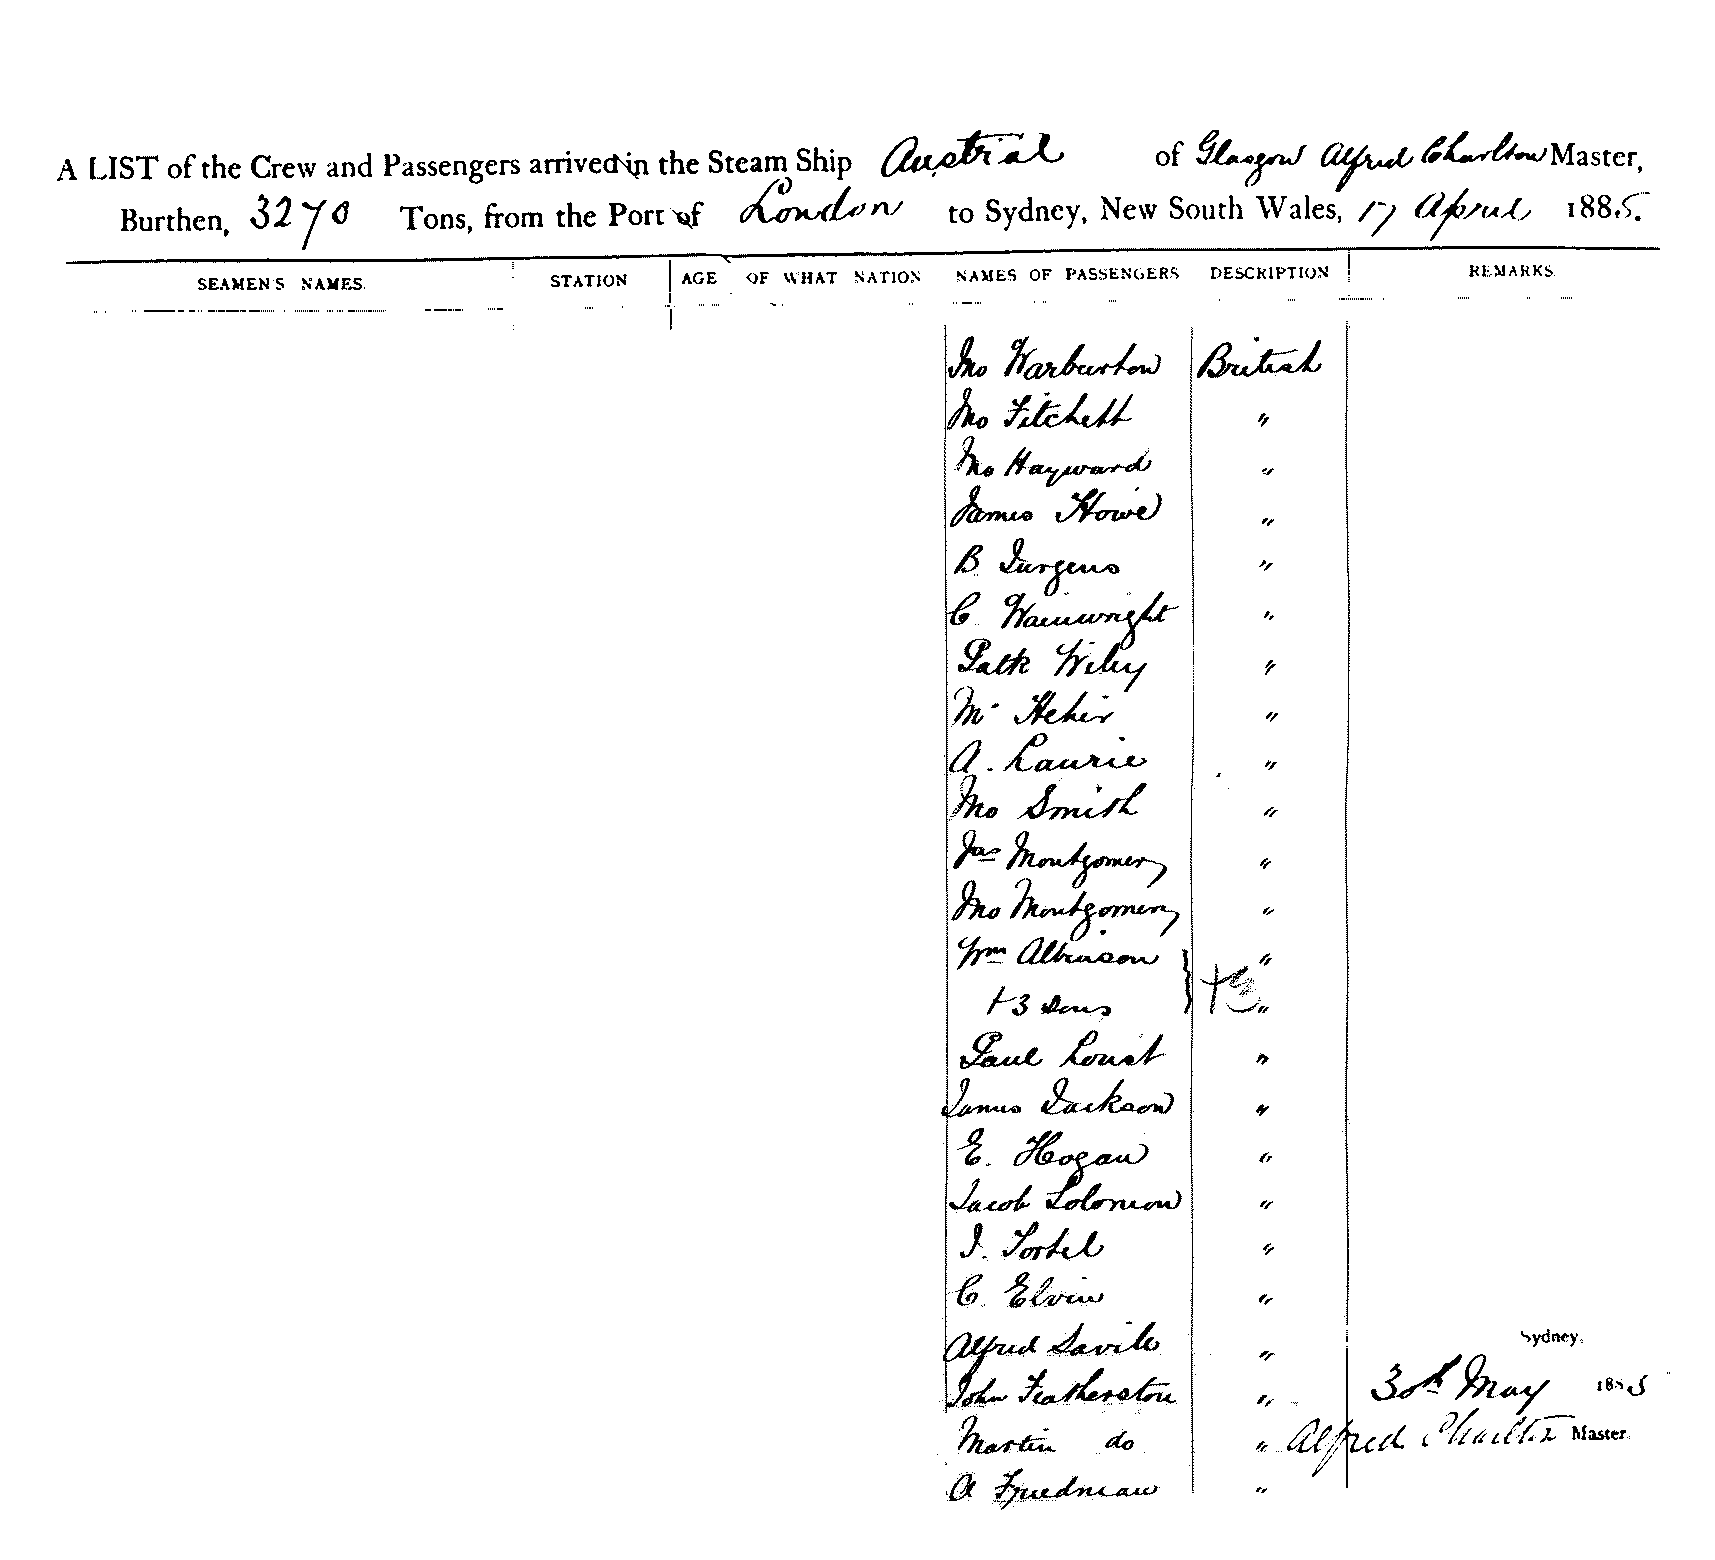 A LIST of the Crew and Passengers arrived in the Steam Ship Austral of Glasgow Alfred Charlton Master,
Burthen, 3270 Tons, from the Port of London to Sydney, New South Wales, 17 April 1885.
SEAMEN'S NAMES. STATION AGE OF WHAT NATION NAMES OF PASSENGERS DESCRIPTION REMARKS
Jno Warburton British
Jno Fitchett "
Jno Hayward "
James Howe "
B. Jurgens "
C. Wainwright "
Patk Wiley "
M. Hehir "
A. Laurie "
Jno Smith "
Jas Montgomery "
Jno Montgomery "
Wm Atkinson "
+ 3 Sons } + 3 "
Paul "
James Jackson "
E. Hogan "
Jacob Solomon "
J. "
C. Elvin "
Alfred Savile "
Sydney,
John Featherston " 30th May 1885
Martin do " Alfred Charlton Master
A Friedman "